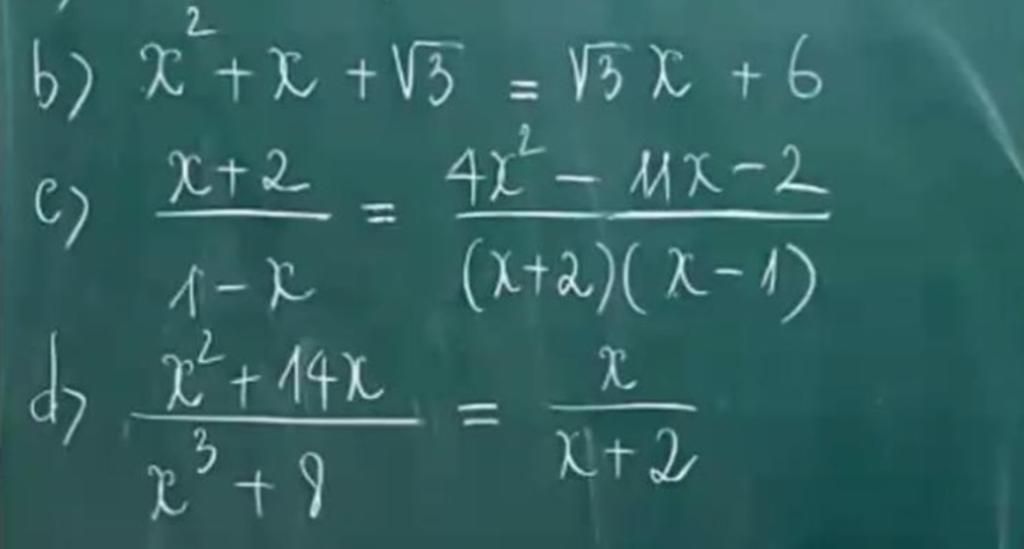 b) x² + x + √3 = √3 x + 6
c) (x+2)/(1-x) = (4x² - 11x - 2)/((x+2)(x-1))
d) (x² + 14x)/(x³ + 8) = x/(x+2)